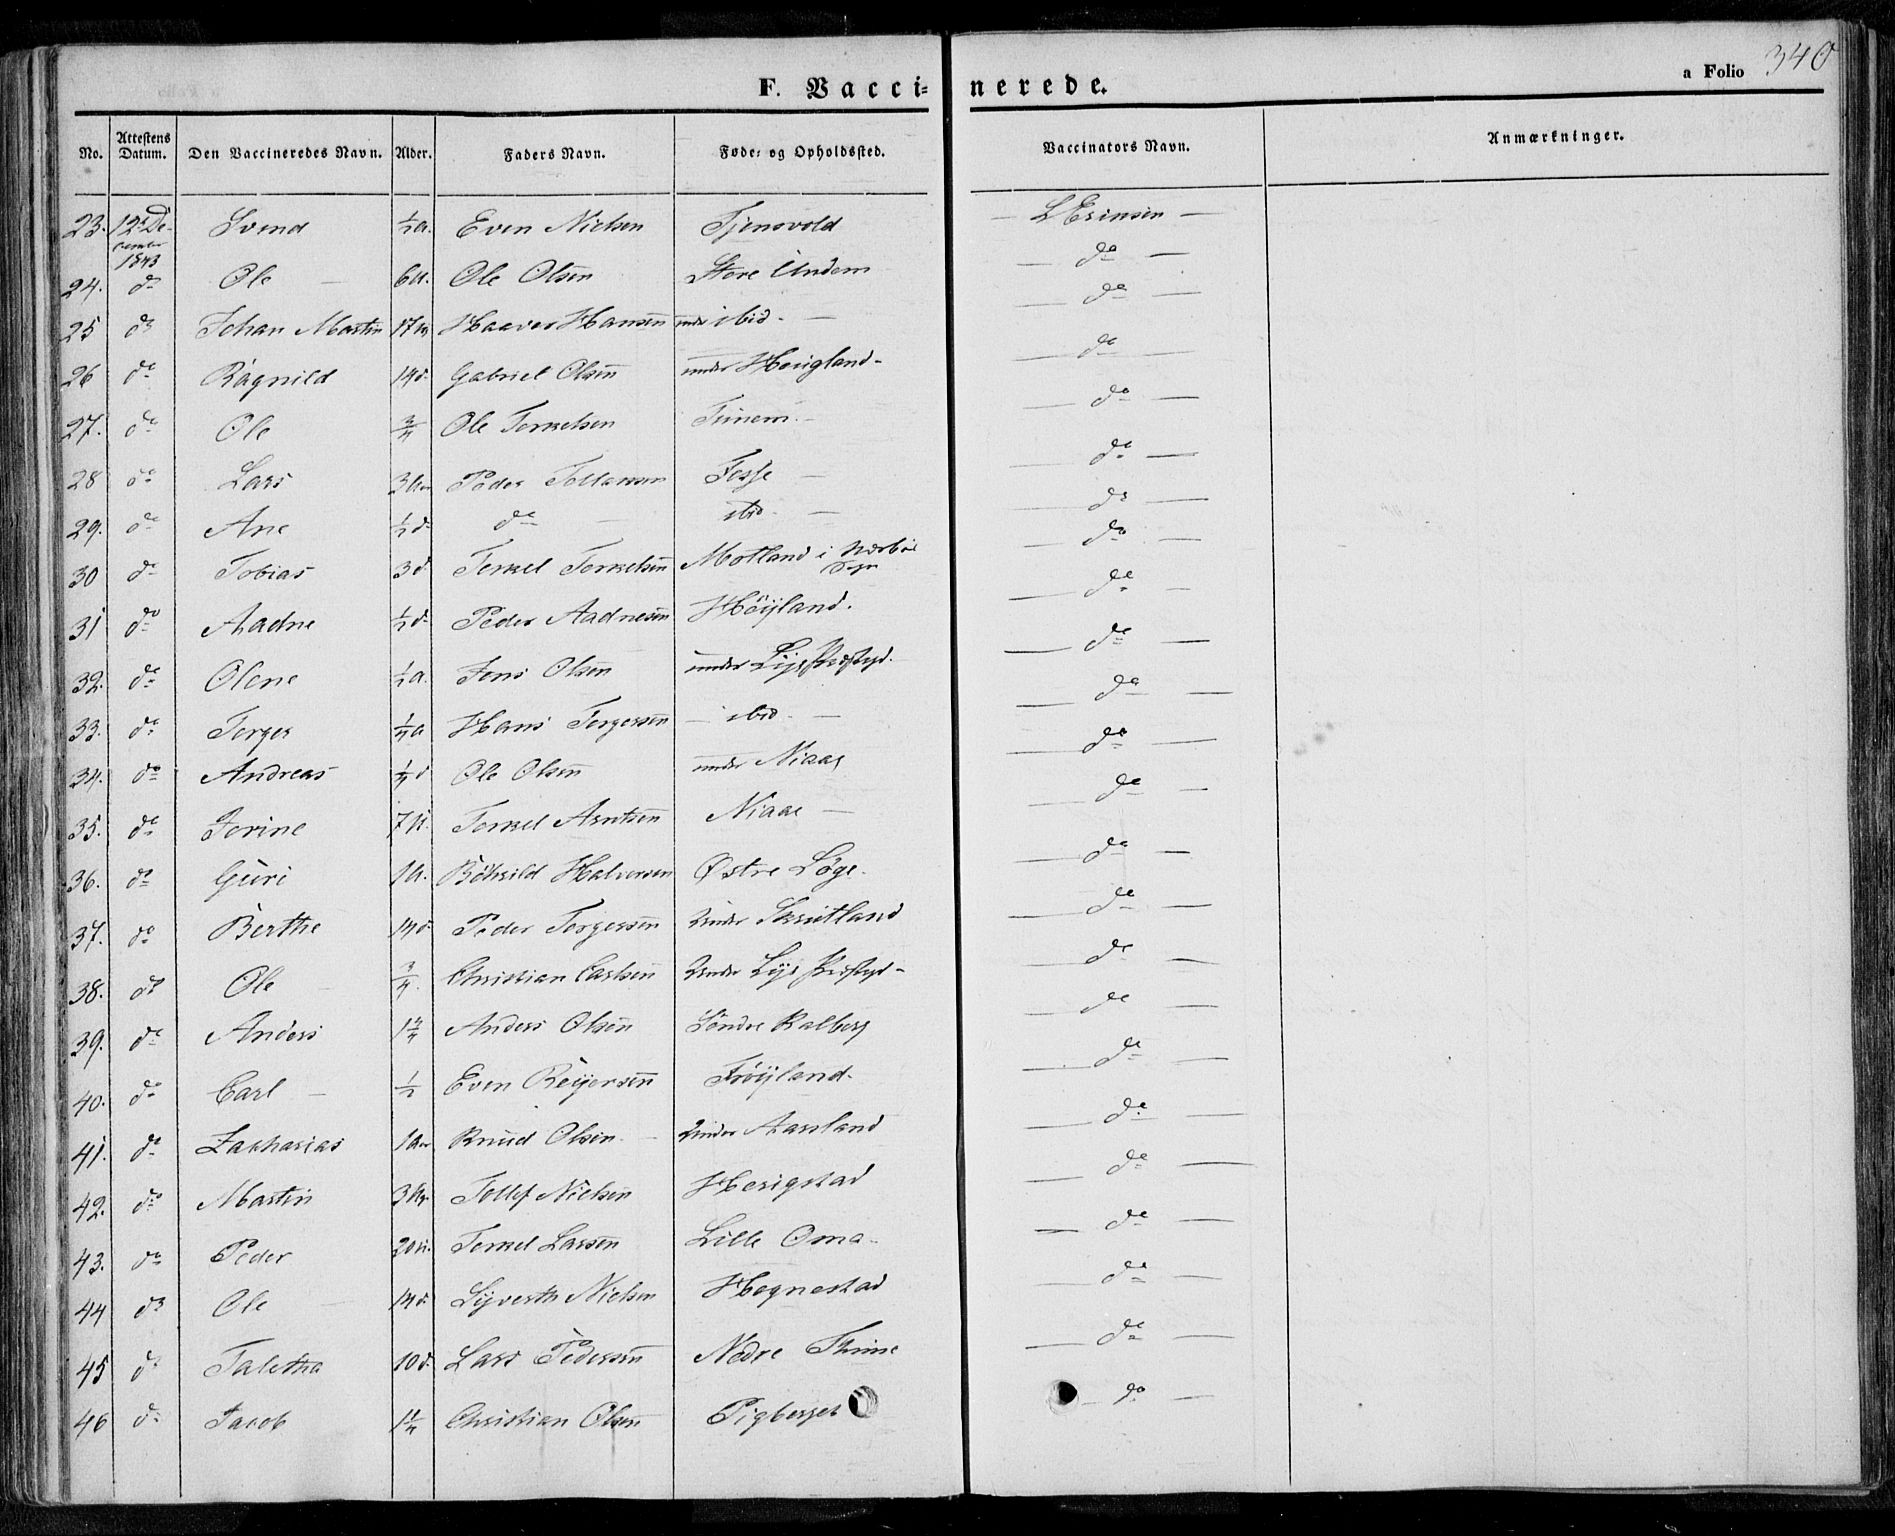 340
a Folio
F. Vacci= nerede.
No. Attestens Datum. Den Vaccineredes Navn. Alder. Faders Navn. Føde= og Opholdssted. Vaccinators Navn. Anmærkninger.
23. 12te De- Svend ½ a. Even Nielsen Tjensvold — L Erinsen —
cember
1843
24. do Ole — 6 Ole Olsen Store Undem — do —
25 do Johan Martin 17 Haaver Hansen under ibid. — — do —
26 do Ragnild 14 d. Gabriel Olsen under Haugland — do —
27. do Ole ¾ Ole Torkelsen Tunem. — — do —
28 do Lars 3 Peder Tollaksen Fosse — — do —
29. do Ane ½ d. do — ibid. — — do —
30 do Tobias 3 d Torkel Torkelsen Motland i Nærbøe — do —
Sogn
31 do Aadne ½ d. Peder Aadnesen Höÿland. — do —
32. do Olene ½ a. Jens Olsen under Lÿe Præstgd. — do —
33. do Torger ¼ a Hans Torgersen — ibid. — — do —
34. do Andreas ¼ d Ole Olsen under Niaae — do —
35. do Jorine 7 Torkel Arntsen Niaae — — do —
36. do Guri 1 a. Bötold Halvorsen Østre Löge. — do —
37. do Berthe 14 d. Peder Torgersen Under Skrutland — do —
38. do Ole — ¾. Christian Carlsen Under Lÿe Præstgd — do —
39. do Anders 1¼ Anders Olsen Söndre Kalberg — do —
40. do Carl — ½ Even Reÿersen Fröÿland. — do —
41. do Zakharias 1 Knud Olsen. — Under Aarsland — do —
42. do Martin 3 Tollef Nielsen Herigstad — do —
43. do Peder 20 Torkel Larsen Lille Oma. — do —
44 do Ole — 14 d. Sÿverth Nielsen Hognestad — do —
45 do Taletha 10 d. Lars Pedersen Nedre Thime — do —
46 do Jacob 1¼ Christian Olsen Pigberget — do —